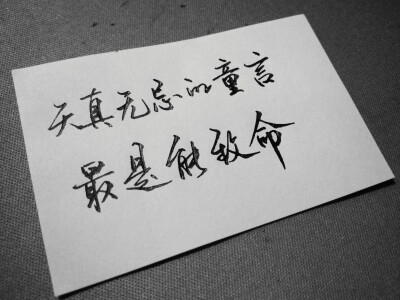 天真无忌的童言
最是能致命